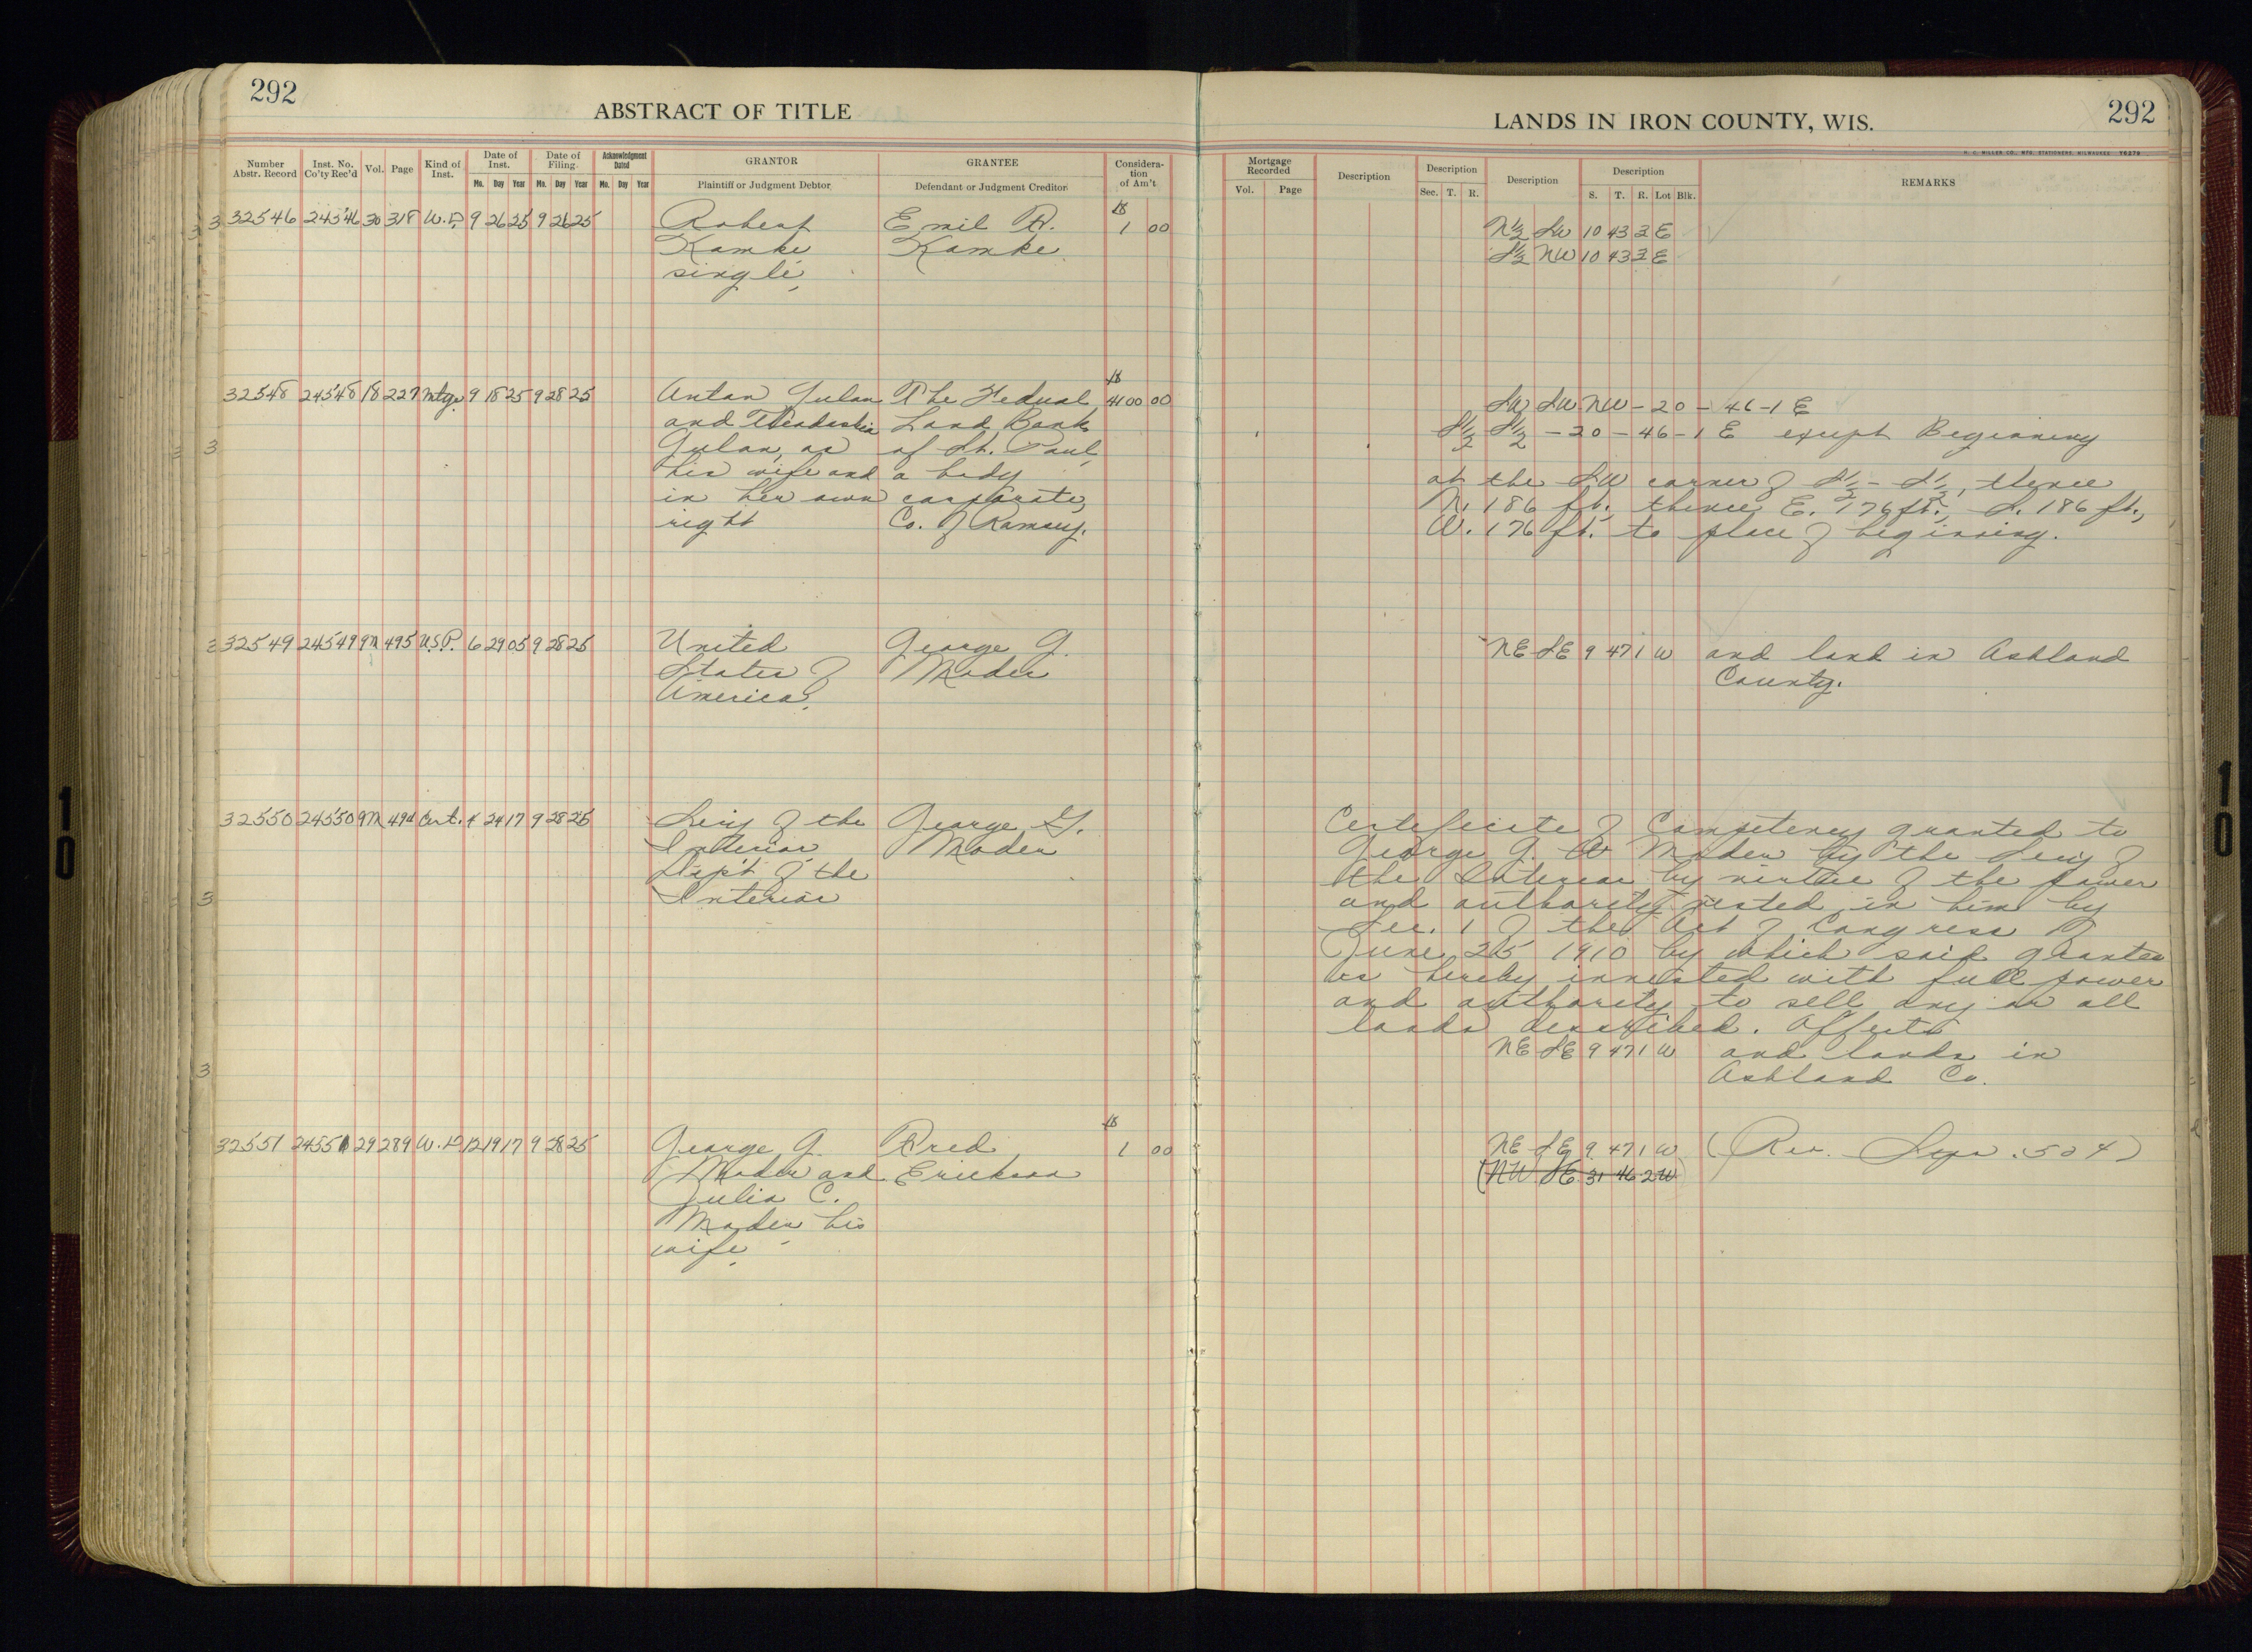 292
ABSTRACT OF TITLE
LANDS IN IRON COUNTY, WIS.
292
H. C. MILLER CO., MFG. STATIONERS, MILWAUKEE
Number Abstr. Record | Inst. No. Co'ty Rec'd | Vol. | Page | Kind of Inst. | Date of Inst. Mo. Day Year | Date of Filing Mo. Day Year | Acknowledgment Dated Mo. Day Year | GRANTOR Plaintiff or Judgment Debtor | GRANTEE Defendant or Judgment Creditor | Considera-tion of Am't | Mortgage Recorded Vol. Page | Description | Description Sec. T. R. | Description | Description S. T. R. Lot Blk. | REMARKS
32546 24546 30 318 W.D. 9 26 25 9 26 25 Robert Emil R. $ 1 00 N½ SW 10 43 3 E
Kamke Kamke S½ NW 10 43 3 E
single,
32548 24548 18 227 Mtge. 9 18 25 9 28 25 Anton Gulan The Federal $ 4100 00 SW SW NW - 20 - 46 - 1 E
and Land Bank S½ S½ - 20 - 46 - 1 E except Beginning
Gulan, as of St. Paul,
his wife and a body at the SW corner of S½ - S½, thence
in her own corporate, N. 186 ft., thence E. 176 ft., S. 186 ft.,
right Co. of Ramsey. W. 176 ft. to place of beginning.
32549 24549 9M 495 U.S.P. 6 29 05 9 28 25 United George G. NE SE 9 47 1 W and land in Ashland
States of Moder County.
America,
32550 24550 9M 494 Cert. 4 24 17 9 28 25 Secy of the George G. Certificate of Competency granted to
Interior Moder George G. Moder by the Secy of
Dep't of the the Interior by virtue of the power
Interior and authority vested in him by
Sec. 1 of the Act of Congress of
June 25 1910 by which said grantee
is hereby invested with full power
and authority to sell any or all
lands described. Affects
NE SE 9 47 1 W and lands in
Ashland Co.
32551 24551 29 289 W.D. 12 19 17 9 28 25 George G. Fred $ 1 00 NE SE 9 47 1 W (Rev. .50 ¢)
Moder and Erickson (NW SE 31 46 2 W)
Julia C.
Moder his
wife,